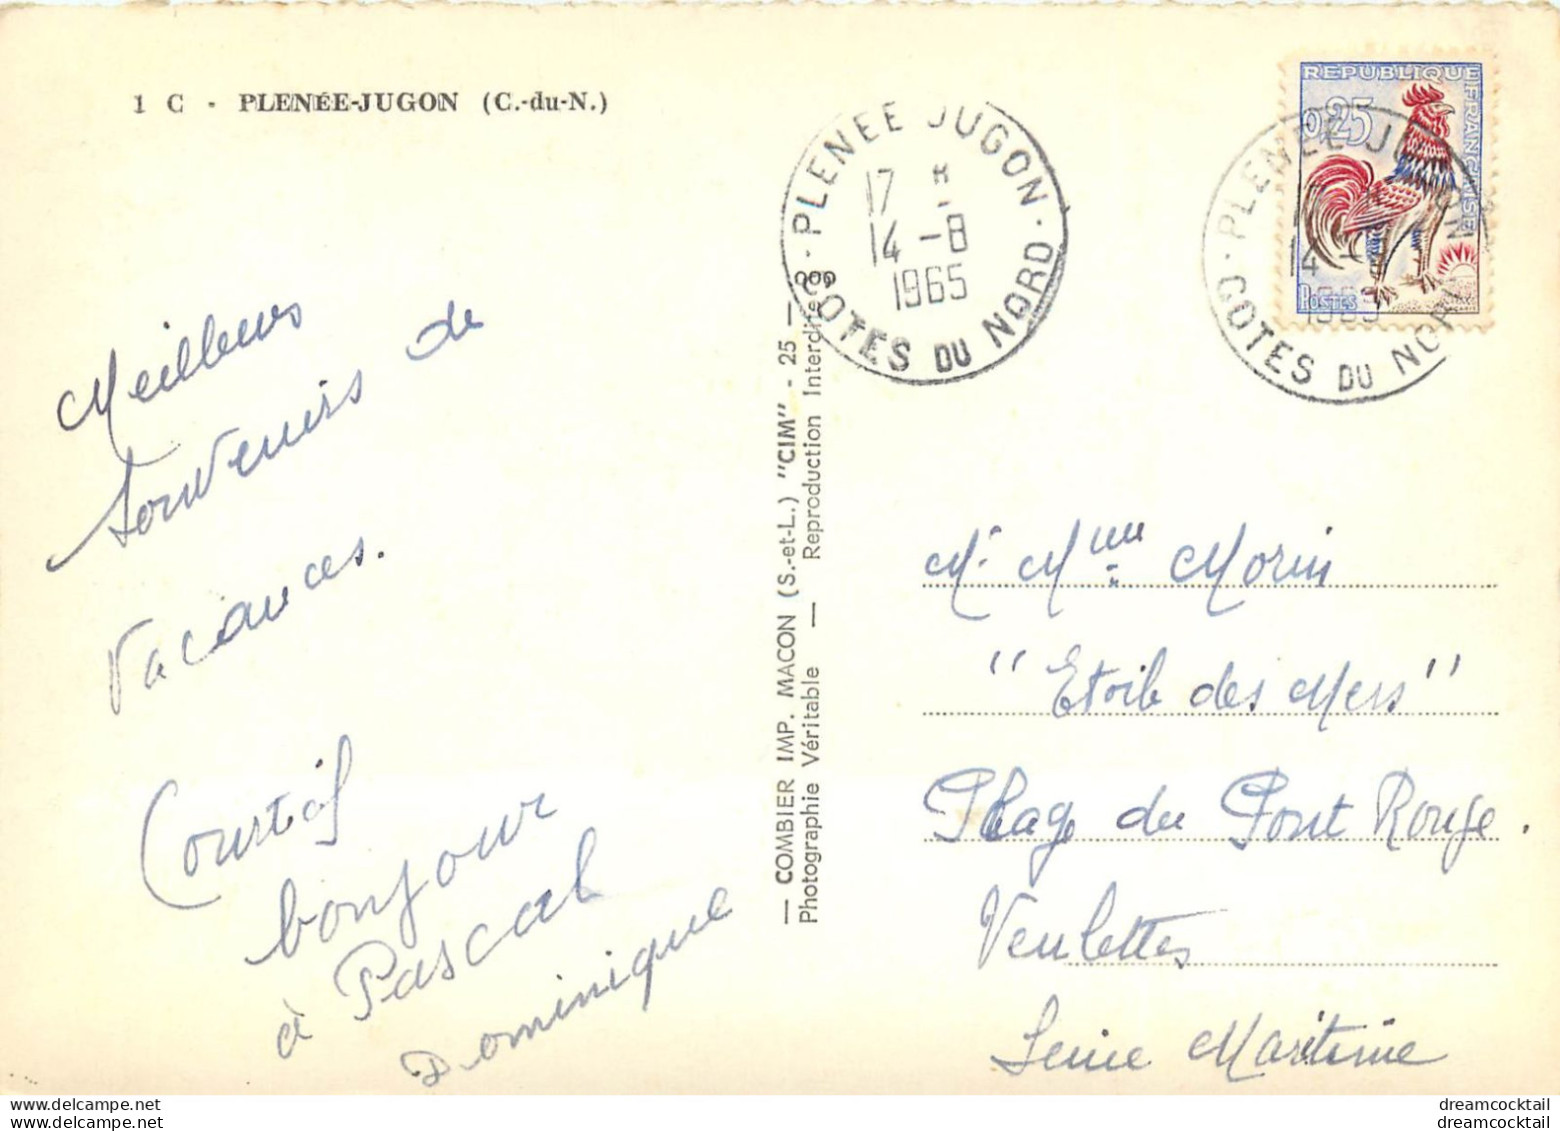 1 C - PLENÉE-JUGON (C.-du-N.)
Meilleurs
souvenirs de
vacances.
bonjour
à Pascal
Dominique
— COMBIER IMP. MACON (S.-et-L.) "CIM" - 25 —
Photographie Véritable — Reproduction Interdite
PLENEE JUGON
17 H
14 -8
1965
COTES DU NORD
REPUBLIQUE FRANCAISE
0,25
POSTES
PLENEE JUGON
14 -8
1965
COTES DU NORD
Mr Mme Morin
"Etoile des Mers"
Plage du Pont Rouge.
Veulettes
Seine Maritime
dreamcocktail
dreamcocktail
dreamcocktail
dreamcocktail